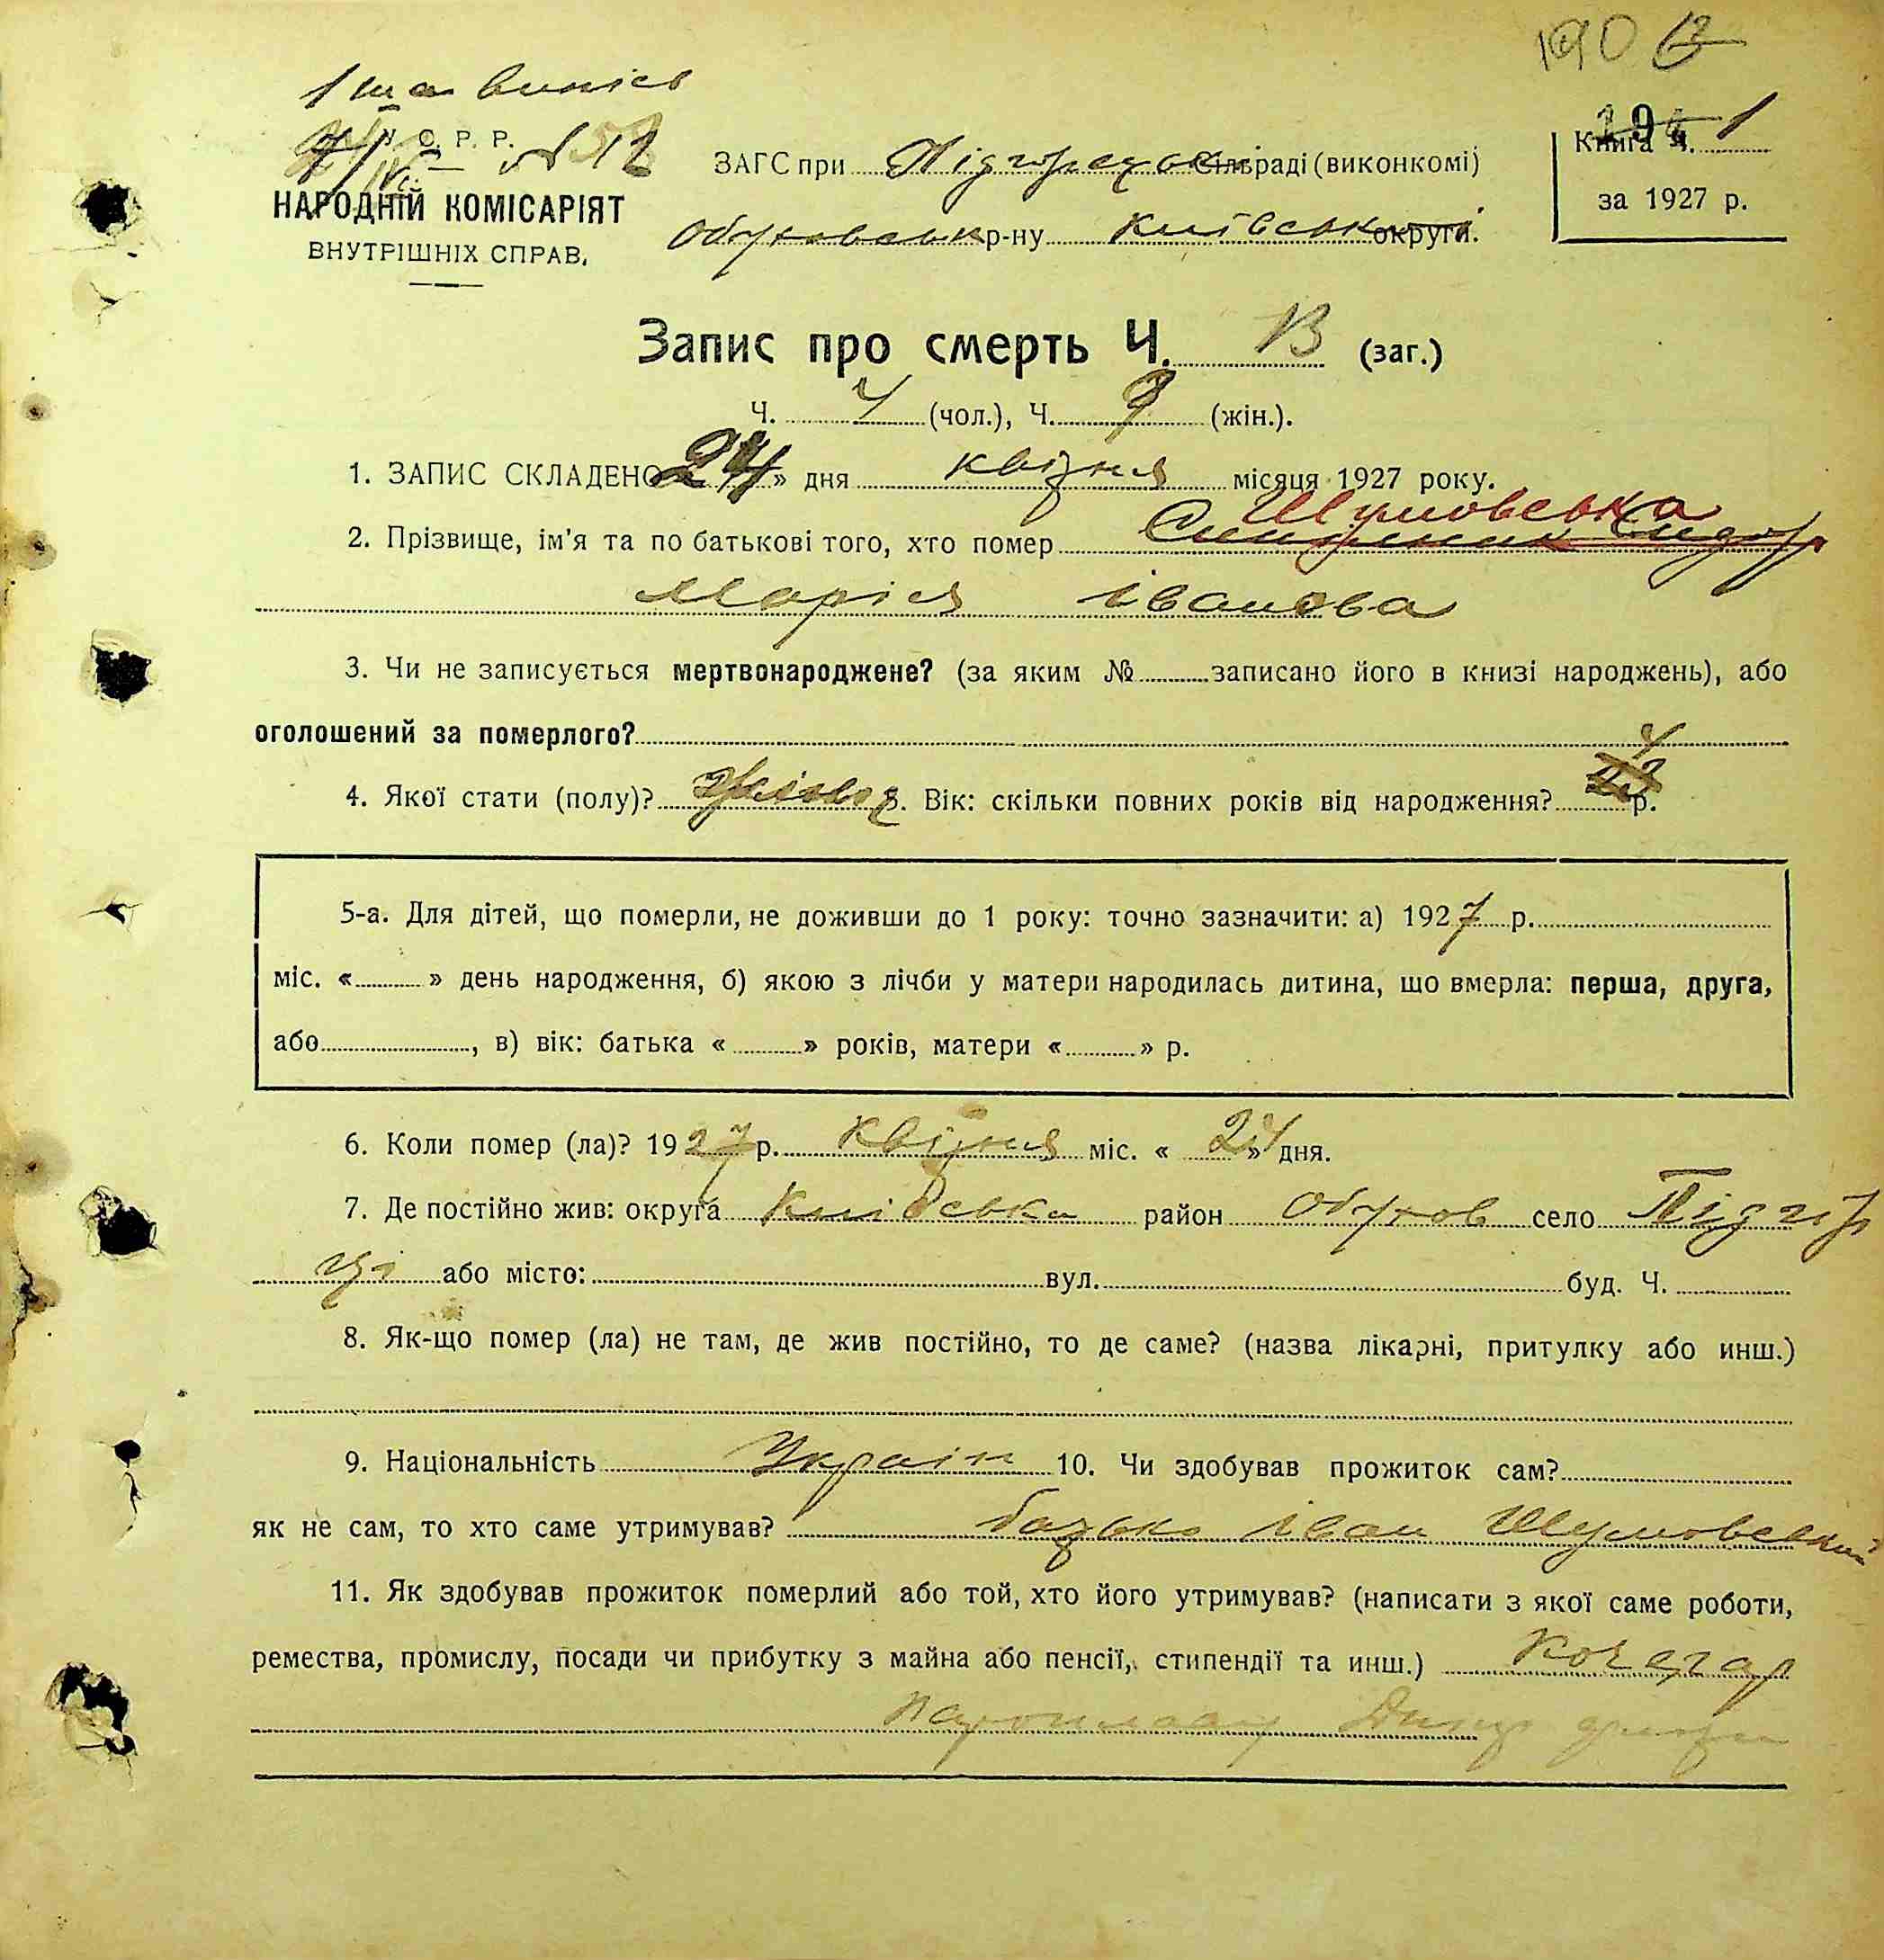 190
У. С. Р. Р. 
НАРОДНІЙ КОМІСАРІЯТ
ВНУТРІШНІХ СПРАВ.
ЗАГС при сільраді (виконкомі)
р-ну округи.
Книга Ч. 1
за 1927 р.
Запис про смерть Ч. 13 (заг.)
Ч. 4 (чол.), Ч. 9 (жін.).
1. ЗАПИС СКЛАДЕНО 24 » дня квітня місяця 1927 року.
Шумовська
2. Прізвище, ім'я та по батькові того, хто помер
Марія Іванова
3. Чи не записується мертвонароджене? (за яким № записано його в книзі народжень), або
оголошений за померлого?
4
4. Якої стати (полу)? 5. Вік: скільки повних років від народження? р.
5-а. Для дітей, що померли, не доживши до 1 року: точно зазначити: а) 1927 р.
міс. « » день народження, б) якою з лічби у матери народилась дитина, що вмерла: перша, друга,
або , в) вік: батька « » років, матери « » р.
6. Коли помер (ла)? 1927 р. квітня міс. « 24 » дня.
7. Де постійно жив: округа Київська район Обухов село Підгір
ці або місто: вул. буд. Ч.
8. Як-що помер (ла) не там, де жив постійно, то де саме? (назва лікарні, притулку або инш.)
9. Національність Україн 10. Чи здобував прожиток сам?
як не сам, то хто саме утримував? батько Іван Шумовський
11. Як здобував прожиток померлий або той, хто його утримував? (написати з якої саме роботи,
ремества, промислу, посади чи прибутку з майна або пенсії, стипендії та инш.) Кочегар